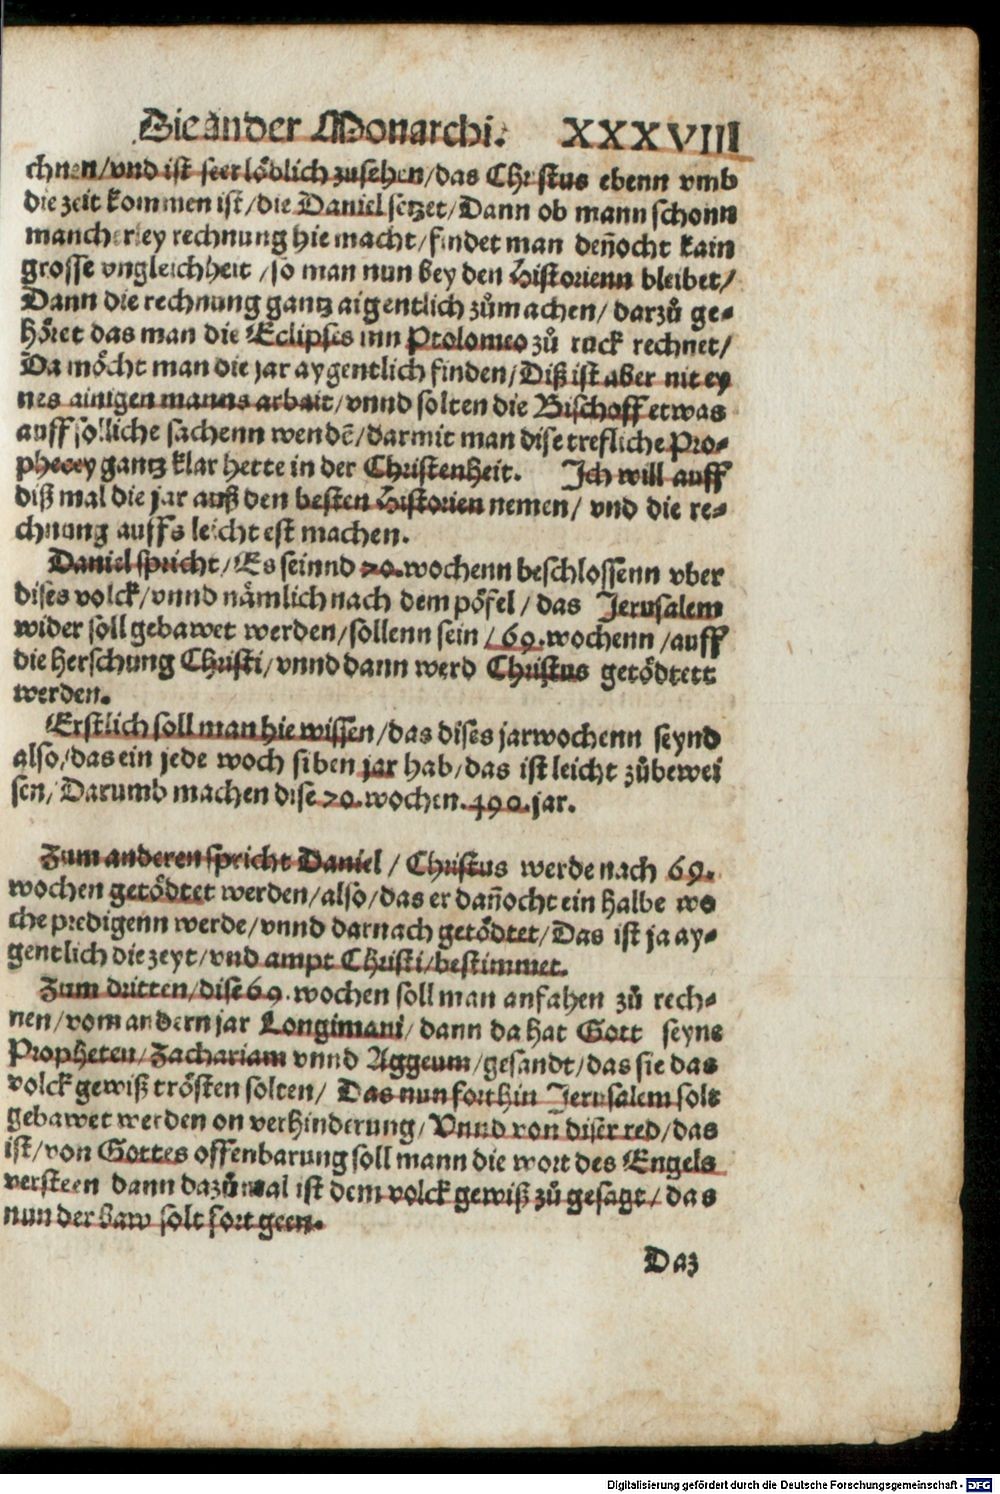 Die ander Monarchi. XXXVIII
chnen/vnd ist seer löblich zusehen/das Christus ebenn vmb
die zeit kommen ist/die Daniel setzet/Dann ob mann schonn
mancherley rechnung hie macht/findet man deñocht kain
grosse vngleichheit/so man nun bey den Historienn bleibet/
Dann die rechnung gantz aigentlich zůmachen/darzů ge-
höret das man die Eclipses inn Ptolomeo zů ruck rechnet/
Da möcht man die jar aygentlich finden/Diß ist aber nit ey
nes ainigen manns arbait/vnnd solten die Bischoff etwas
auff sölliche sachenn wendẽ/darmit man dise trefliche Pro-
phecey gantz klar hette in der Christenheit. Ich will auff
diß mal die jar auß den besten Historien nemen/vnd die re-
chnung auffs leichtest machen.
Daniel spricht/Es seinnd 70.wochenn beschlossenn vber
dises volck/vnnd nämlich nach dem pöfel/das Jerusalem
wider soll gebawet werden/sollenn sein/69.wochenn/auff
die herschung Christi/vnnd dann werd Christus getödtett
werden.
Erstlich soll man hie wissen/das dises jarwochenn seynd
also/das ein jede woch siben jar hab/das ist leicht zůbewei
sen/Darumb machen dise 70.wochen.490.jar.
Zum anderen spricht Daniel/Christus werde nach 69.
wochen getödtet werden/also/das er dañocht ein halbe wo
che predigenn werde/vnnd darnach getödtet/Das ist ja ay-
gentlich die zeyt/vnd ampt Christi/bestimmet.
Zum dritten/dise 69.wochen soll man anfahen zů rech-
nen/vom andern jar Longimani/dann da hat Gott seyne
Propheten/Zachariam vnnd Aggeum/gesandt/das sie das
volck gewiß trösten solten/Das nun forthin Jerusalem solt
gebawet werden on verhinderung/Vnnd von diser red/das
ist/von Gottes offenbarung soll mann die wort des Engels
versteen dann dazůmal ist dem volck gewiß zů gesagt/das
nun der Baw solt fort geen.
Daz
Digitalisierung gefördert durch die Deutsche Forschungsgemeinschaft - DFG